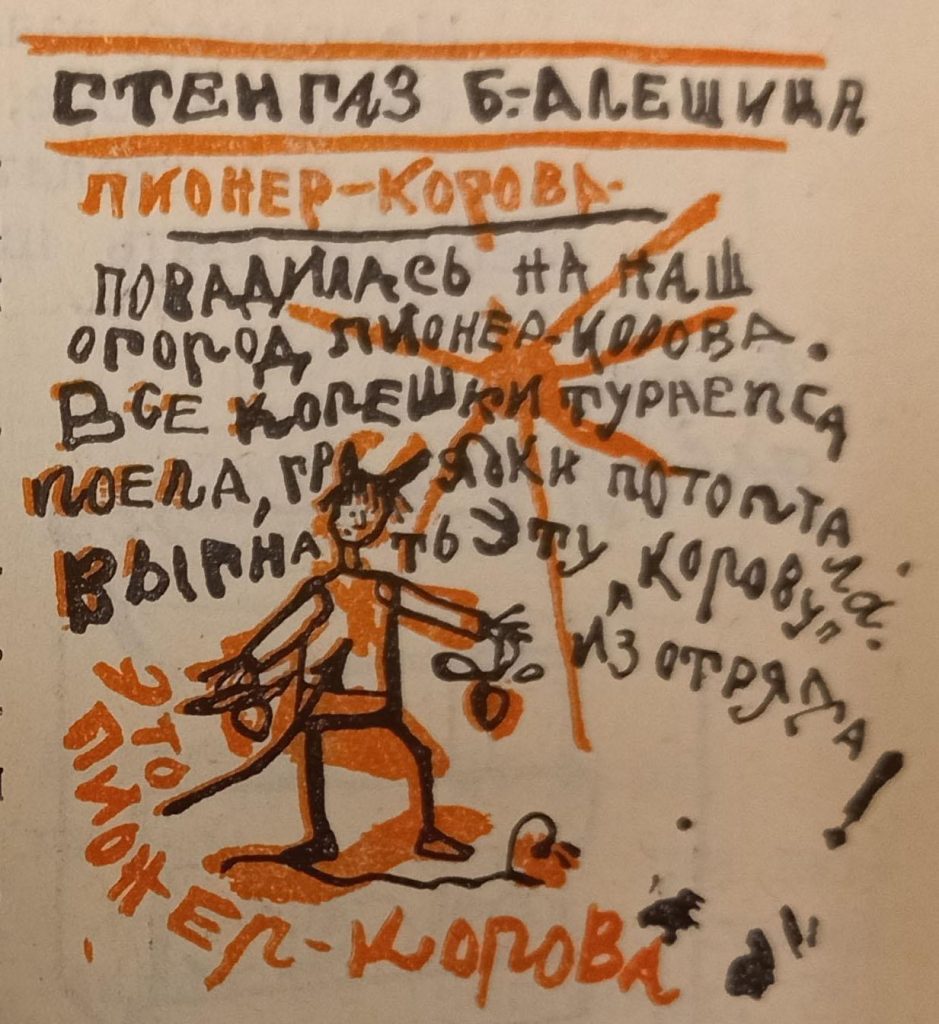 СТЕНГАЗ Б.-АЛЕШИЦА
ПИОНЕР-КОРОВА
ПОВАДИЛАСЬ НА НАШ
ОГОРОД ПИОНЕР-КОРОВА.
ВСЕ КОРЕШКИ ТУРНЕПСА
ПОЕЛА, ГРЯДКИ ПОТОПТАЛА.
ВЫГНАТЬ ЭТУ „КОРОВУ"
ИЗ ОТРЯДА!
ЭТО
ПИОНЕР-КОРОВА